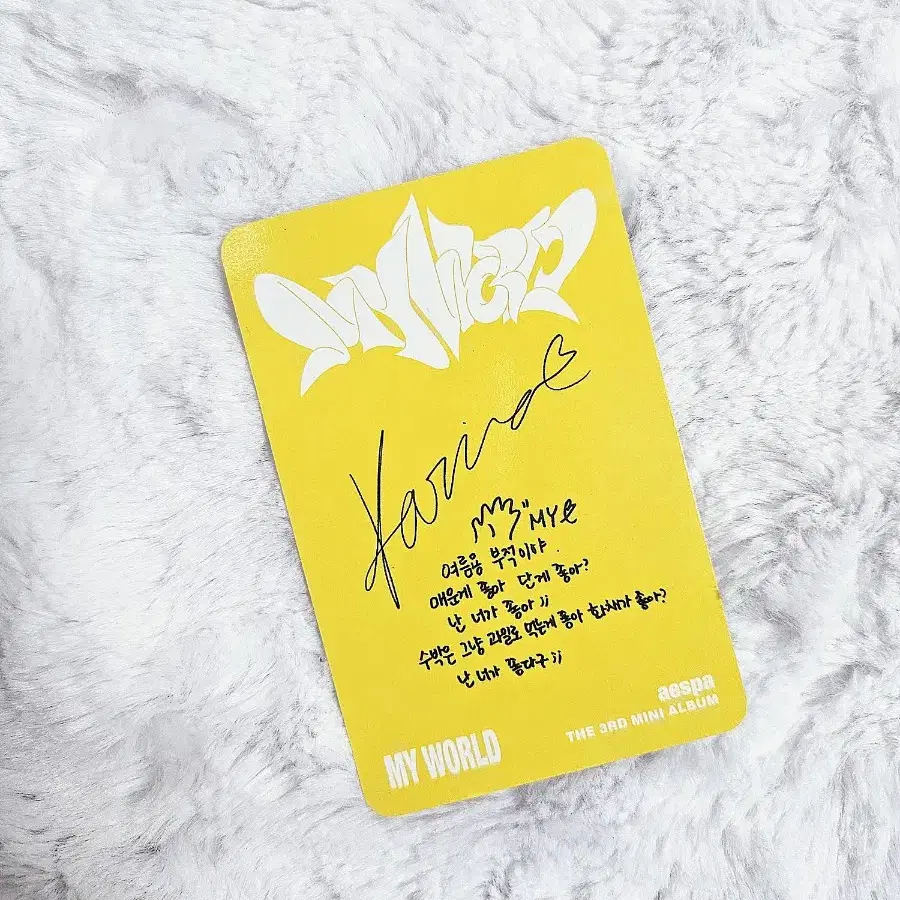 MY WORLD
Karina
MY
여름용 부적이야.
매운게 좋아 단게 좋아?
난 너가 좋아;;
수박은 그냥 과일로 먹는게 좋아 화채가 좋아?
난 너가 좋다구;;
aespa
THE 3RD MINI ALBUM
MY WORLD